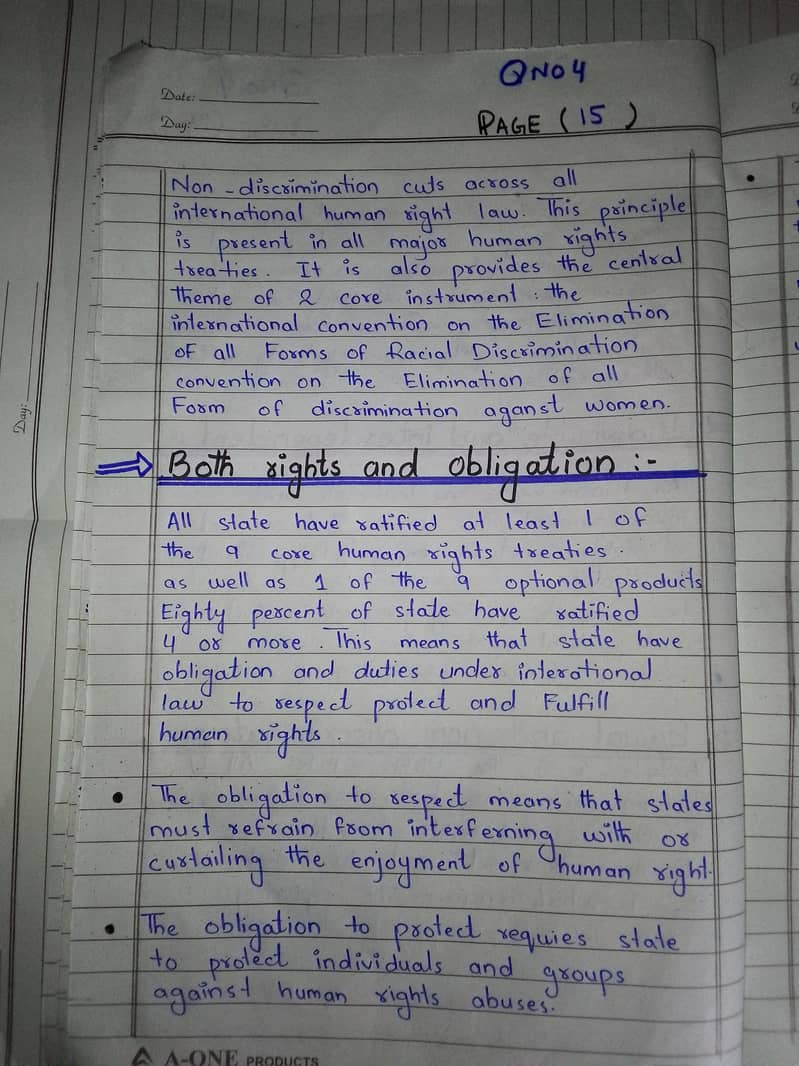 QNO4
Date:
Day:
PAGE ( 15 )
Non-discrimination cuts across all
international human right law. This principle
is present in all major human rights
treaties. It is also provides the central
theme of 2 core instrument : the
international convention on the Elimination
OF all Forms of Racial Discrimination
convention on the Elimination of all
Form of discrimination aganst women.
Both rights and obligation :-
All state have ratified at least 1 of
the 9 core human rights treaties.
as well as 1 of the 9 optional products
Eighty percent of state have ratified
4 or more. This means that state have
obligation and duties under interotional
law to respect protect and Fulfill
human rights.
• The obligation to respect means that states
must refrain from interferning with or
curtailing the enjoyment of human right.
• The obligation to protect requies state
to protect individuals and groups
against human rights abuses.
A-ONE PRODUCTS
Day: